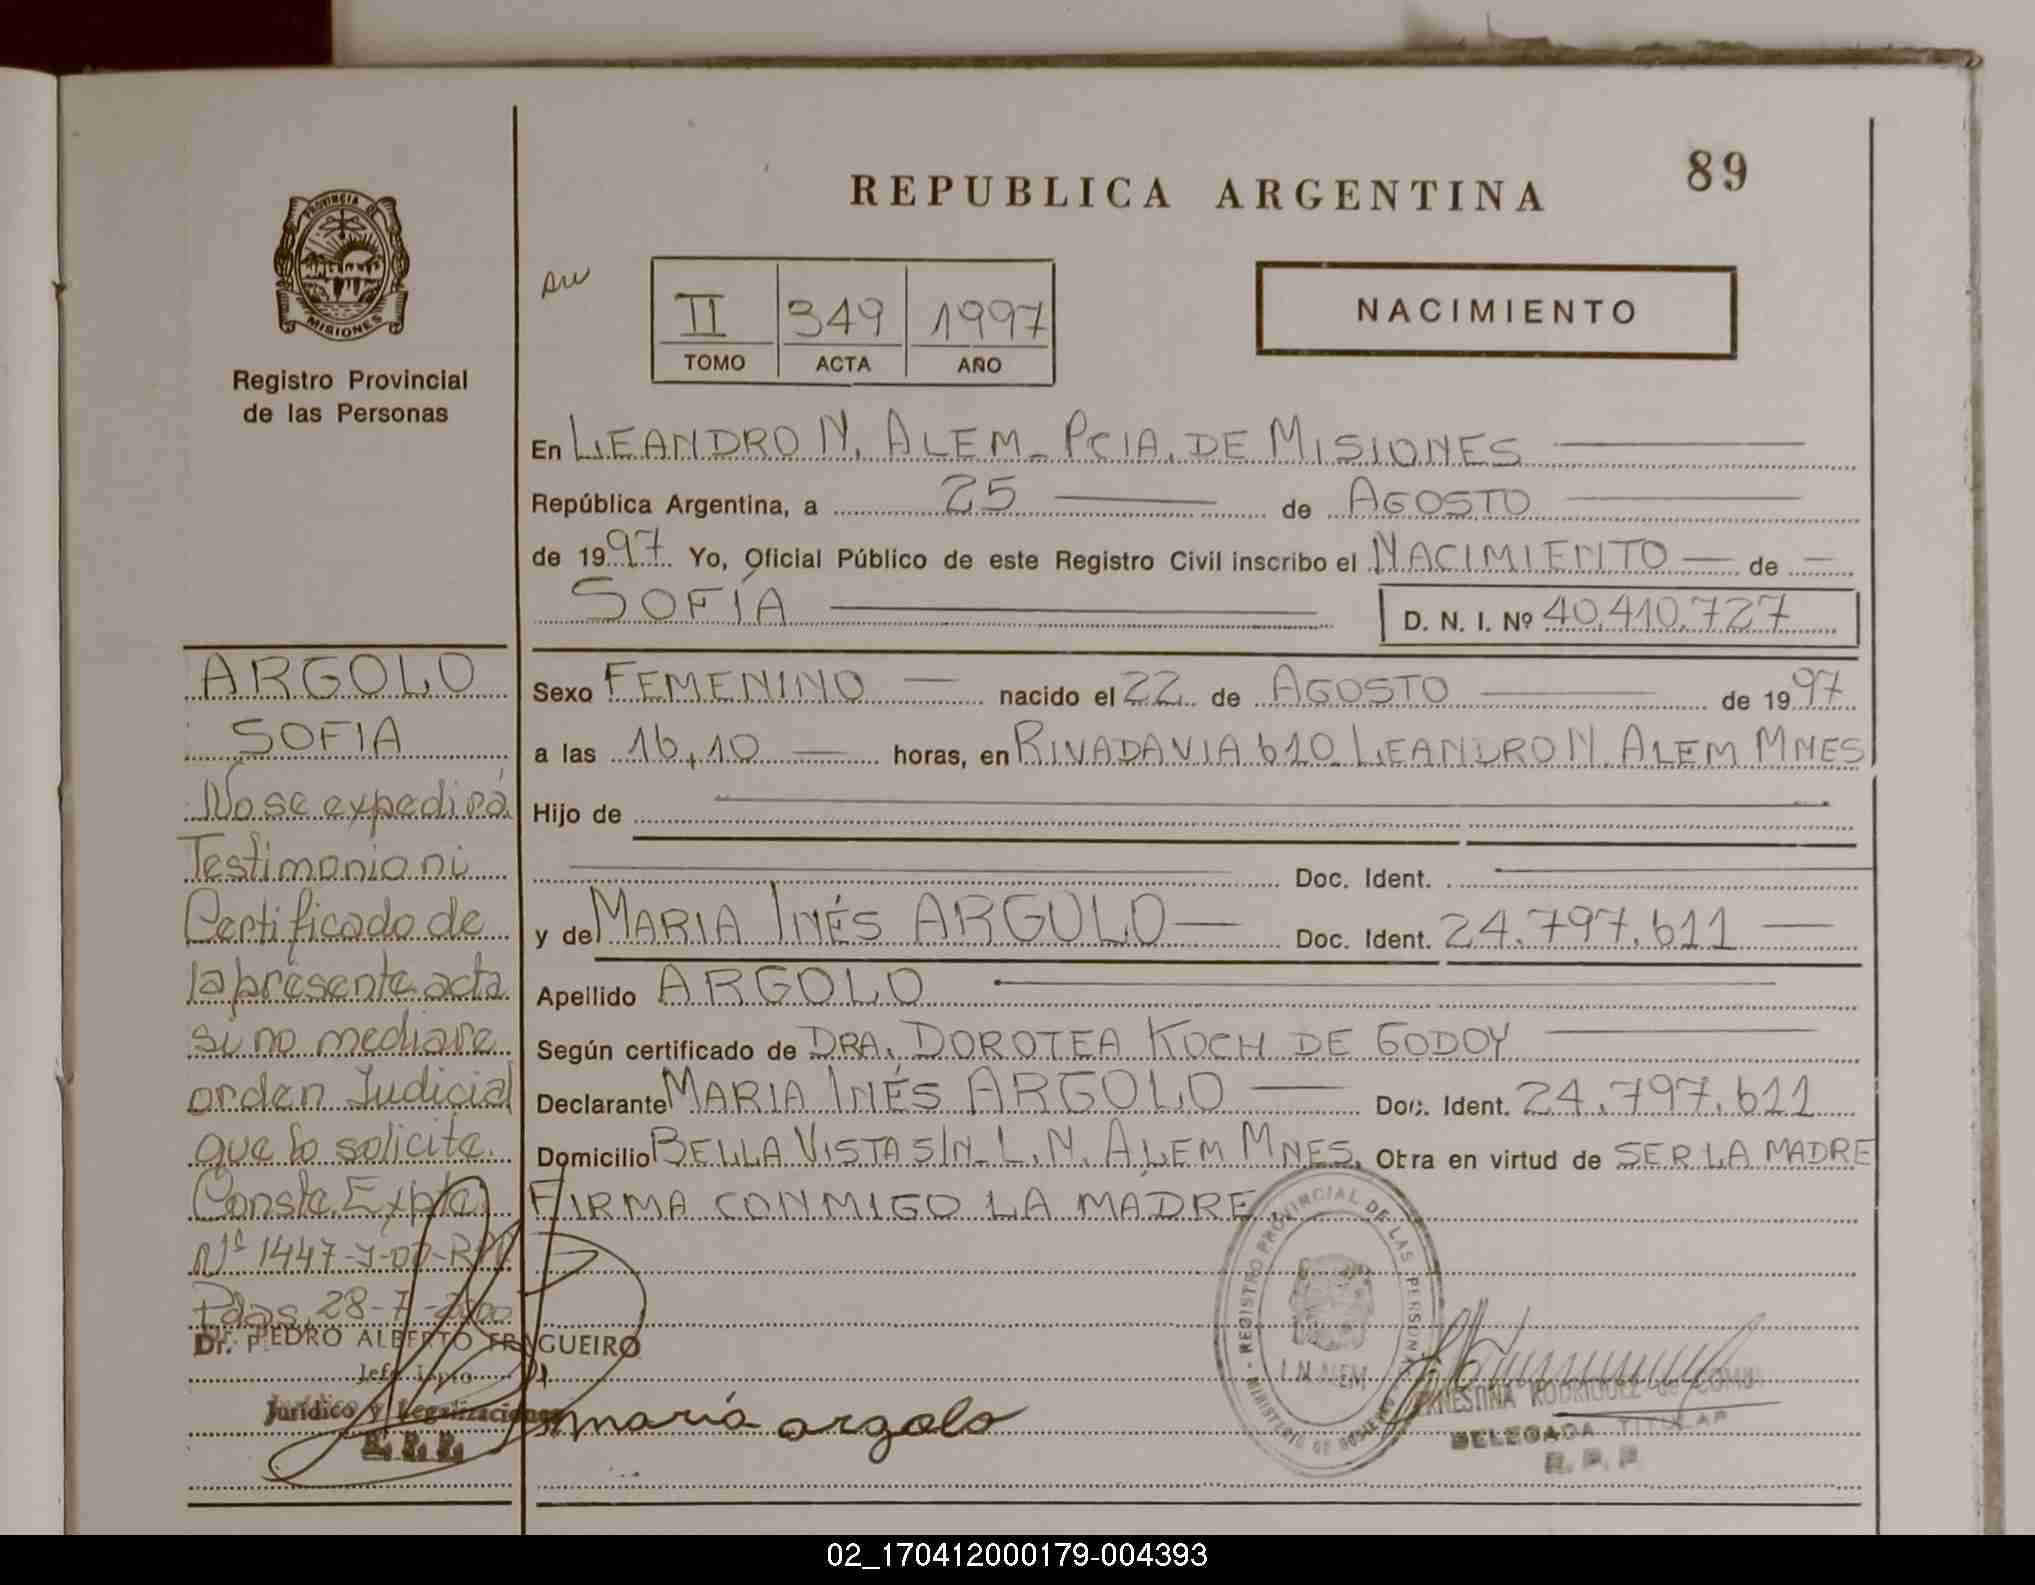 REPUBLICA ARGENTINA
89
PROVINCIA DE
MISIONES
Registro Provincial
de las Personas
II 349 1997
TOMO ACTA AÑO
NACIMIENTO
En LEANDRO N. ALEM - PCIA. DE MISIONES
República Argentina, a 25 de AGOSTO
de 1997 Yo, Oficial Público de este Registro Civil inscribo el NACIMIENTO de
SOFÍA
D. N. I. Nº 40.410.727
Sexo FEMENINO nacido el 22 de AGOSTO de 1997
a las 16,10 horas, en RIVADAVIA 610 LEANDRO N. ALEM MNES
Hijo de
Doc. Ident.
y de MARIA INÉS ARGOLO Doc. Ident. 24.797.611
Apellido ARGOLO
Según certificado de DRA. DOROTEA KOCH DE GODOY
Declarante MARIA INÉS ARGOLO Doc. Ident. 24.797.611
Domicilio BELLA VISTA S/N - L. N. ALEM MNES. Obra en virtud de SER LA MADRE
FIRMA CONMIGO LA MADRE.
ARGOLO
SOFIA
No se expedirá
Testimonio ni
Certificado de
la presente acta
si no mediare
orden Judicial
que lo solicite.
Conste. Expte.
Nº 1447-
Pdas, 28-7-2000
Dr. PEDRO ALBERTO FRAGUEIRO
Jefe Dpto
Jurídico y Legalizaciones
R. P. P.
maría argolo
REGISTRO PROVINCIAL DE LAS PERSONAS
L.N. ALEM
MINISTERIO DE GOBIERNO
ERNESTINA RODRIGUEZ de
DELEGADA TITULAR
R. P. P.
02_170412000179-004393